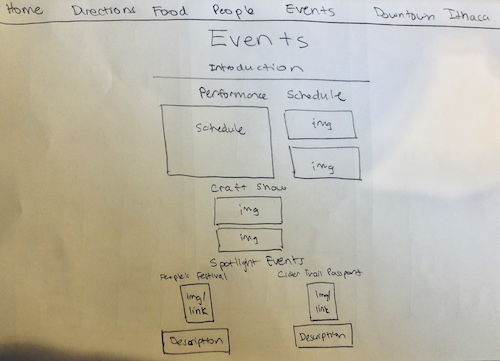 Home Directions Food People Events Downtown Ithaca
Events
Introduction
Performance Schedule
Schedule
img
img
Craft Show
img
img
Spotlight Events
People's Festival Cider Trail Passport
img/ img/
link link
Description Description